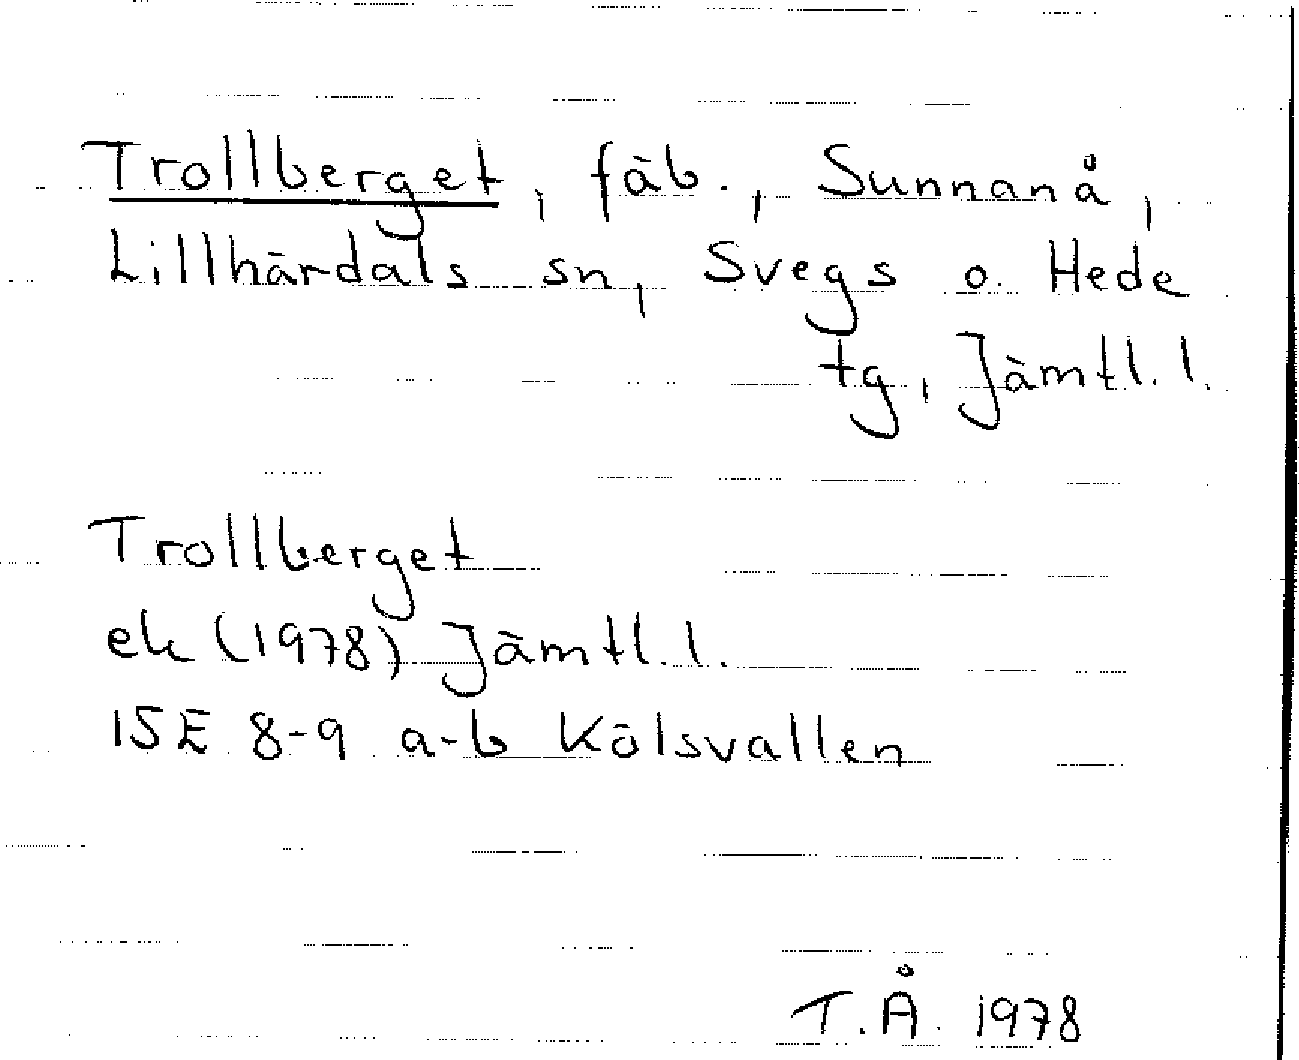 Trollberget, fäb., Sunnanå,
Lillhärdals sn, Svegs o. Hede
tg, Jämtl. l.
Trollberget
ek (1978) Jämtl. l.
15E 8-9 a-b Kölsvallen
T.Å. 1978